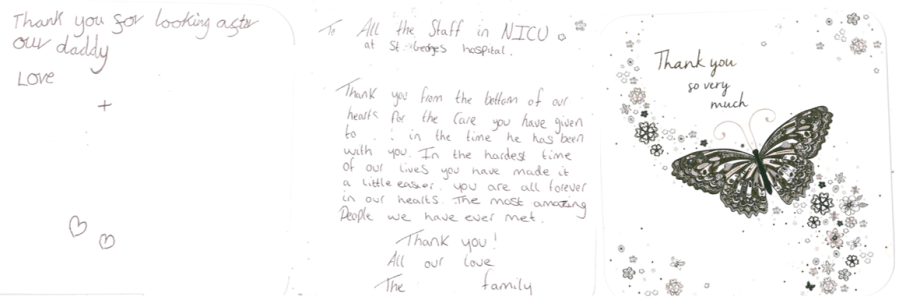 Thank you for looking after
our daddy
Love
+
To All the Staff in NICU
at St. Georges hospital.
Thank you from the bottom of our
hearts for the care you have given
to in the time he has been
with you. In the hardest time
of our lives you have made it
a little easier. you are all forever
in our hearts. The most amazing
People we have ever met.
Thank you!
All our love
The family
Thank you
so very
much